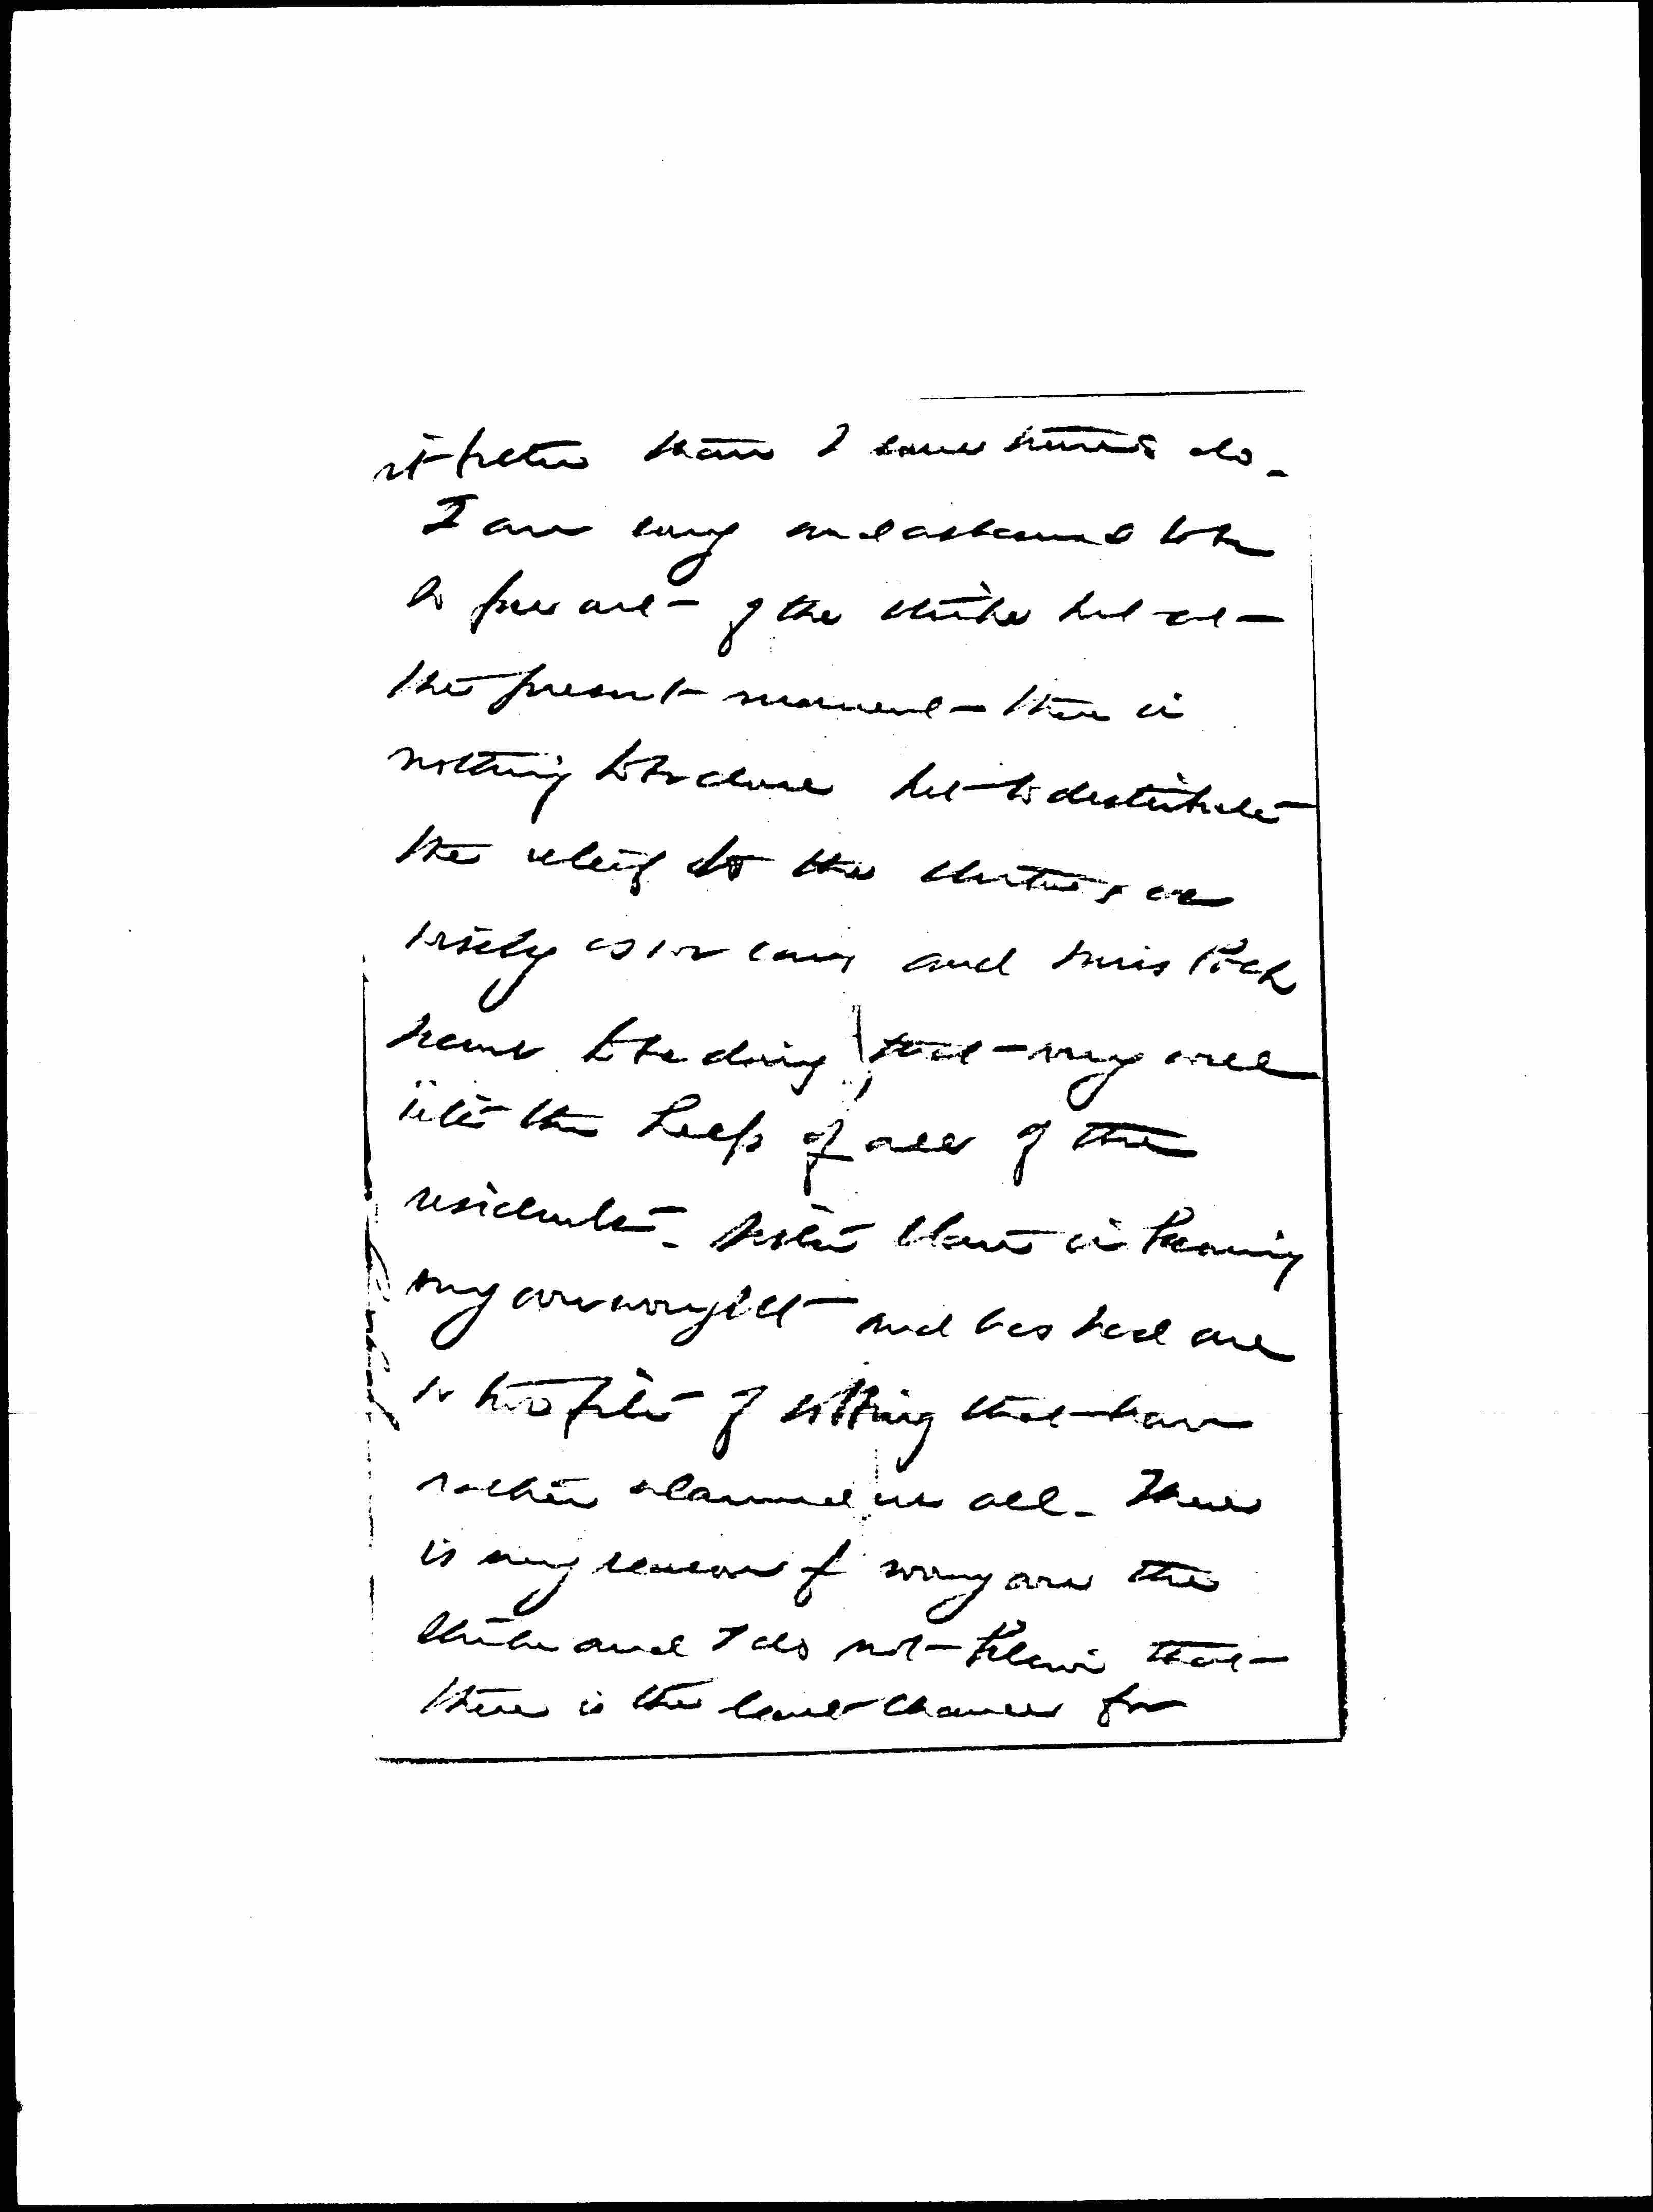 it better than I can here to do.
I am very much ashamed to be
so far out - of the strike but at -
the present - moment - there is
nothing to be done but - to distribute
the relief to the strikers as
wisely as we can, and Miss Pack
seems to be doing that - very well
with the help of all of the
residents. Sister Clare is having
very overwrought - and has had one
or two fits of sobbing that - have
rather alarmed us all. There
is my reason for worry over the
strike and I do not - believe that -
there is the least chance for